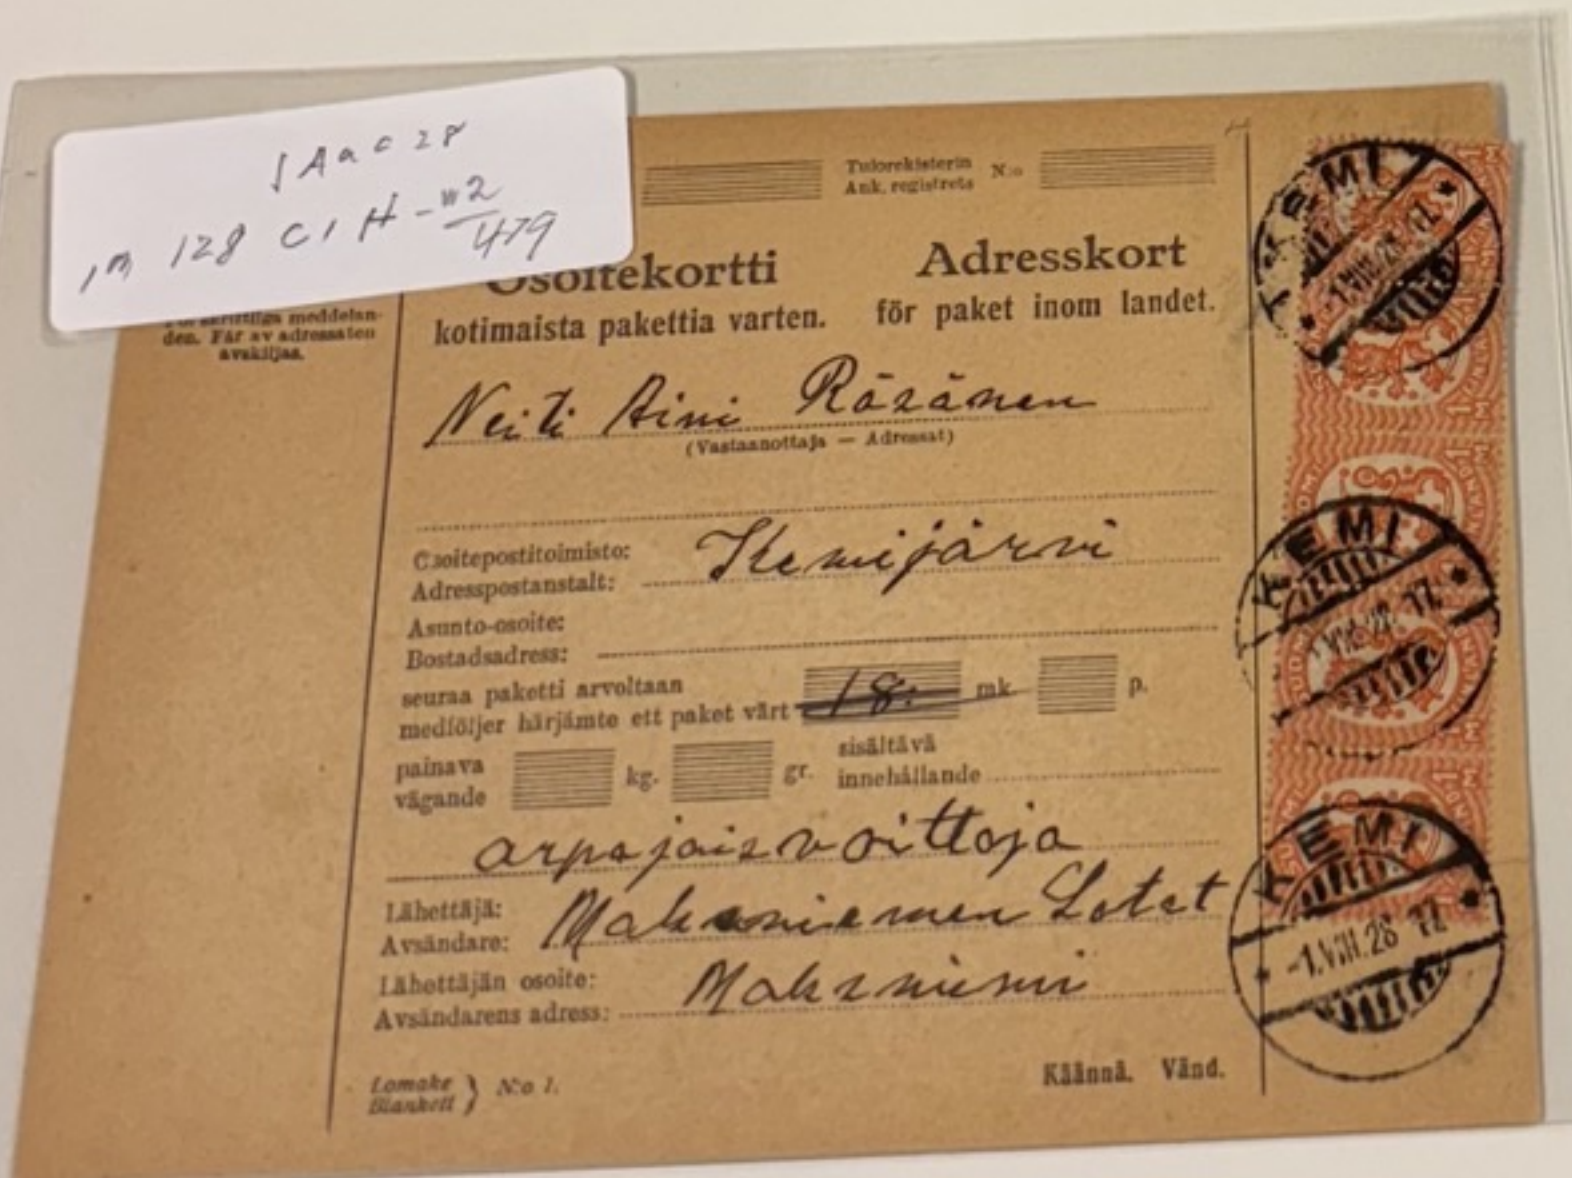 SAaC28
1m 128 C1H-w2
479
Tulorekisterin
Ank. registrets N:o
Osoitekortti
kotimaista pakettia varten.
Adresskort
för paket inom landet.
skriftliga meddelan-
den. Får av adressaten
avskiljas.
Neiti Aini Räsänen
(Vastaanottaja — Adressat)
Osoitepostitoimisto:
Adresspostanstalt:
Kemijärvi
Asunto-osoite:
Bostadsadress:
seuraa paketti arvoltaan
medföljer härjämte ett paket värt 18: mk p.
painava
vägande kg. gr.
sisältävä
innehållande
arpajaisvoittoja
Lähettäjä:
Avsändare:
Maksniemen Lotat
Lähettäjän osoite:
Avsändarens adress:
Maksniemi
Lomake
Blankett } N:o 1.
Käännä. Vänd.
KEMI
-1.VIII.28 17
KEMI
1.VIII.28 17
KEMI
-1.VIII.28 17